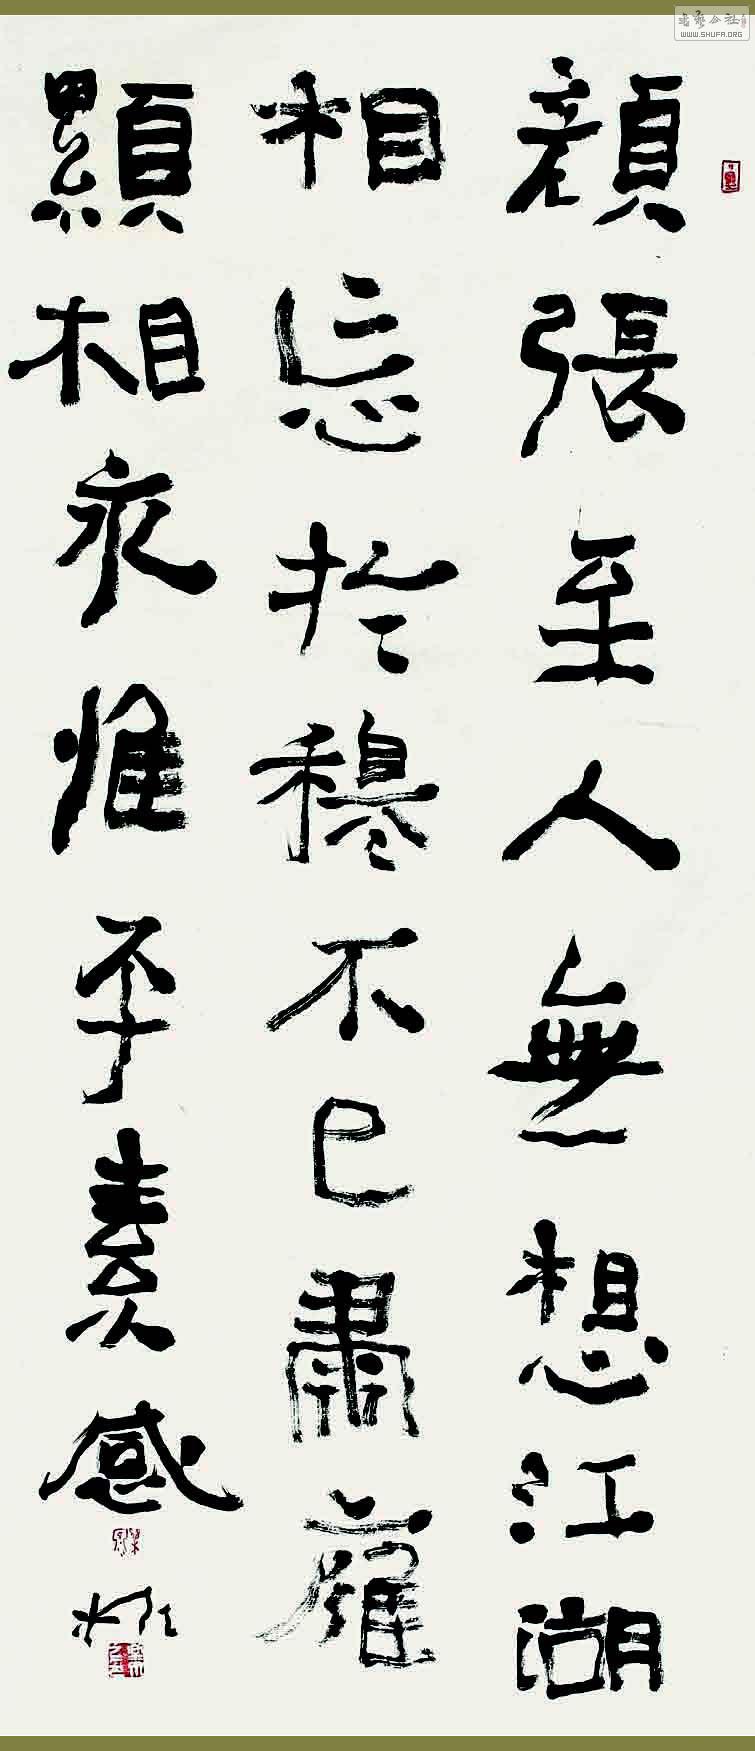 書藝公社
WWW.SHUFA.ORG
顏張至人無想江湖
相忘於穆不已肅雍
顯相永惟素感